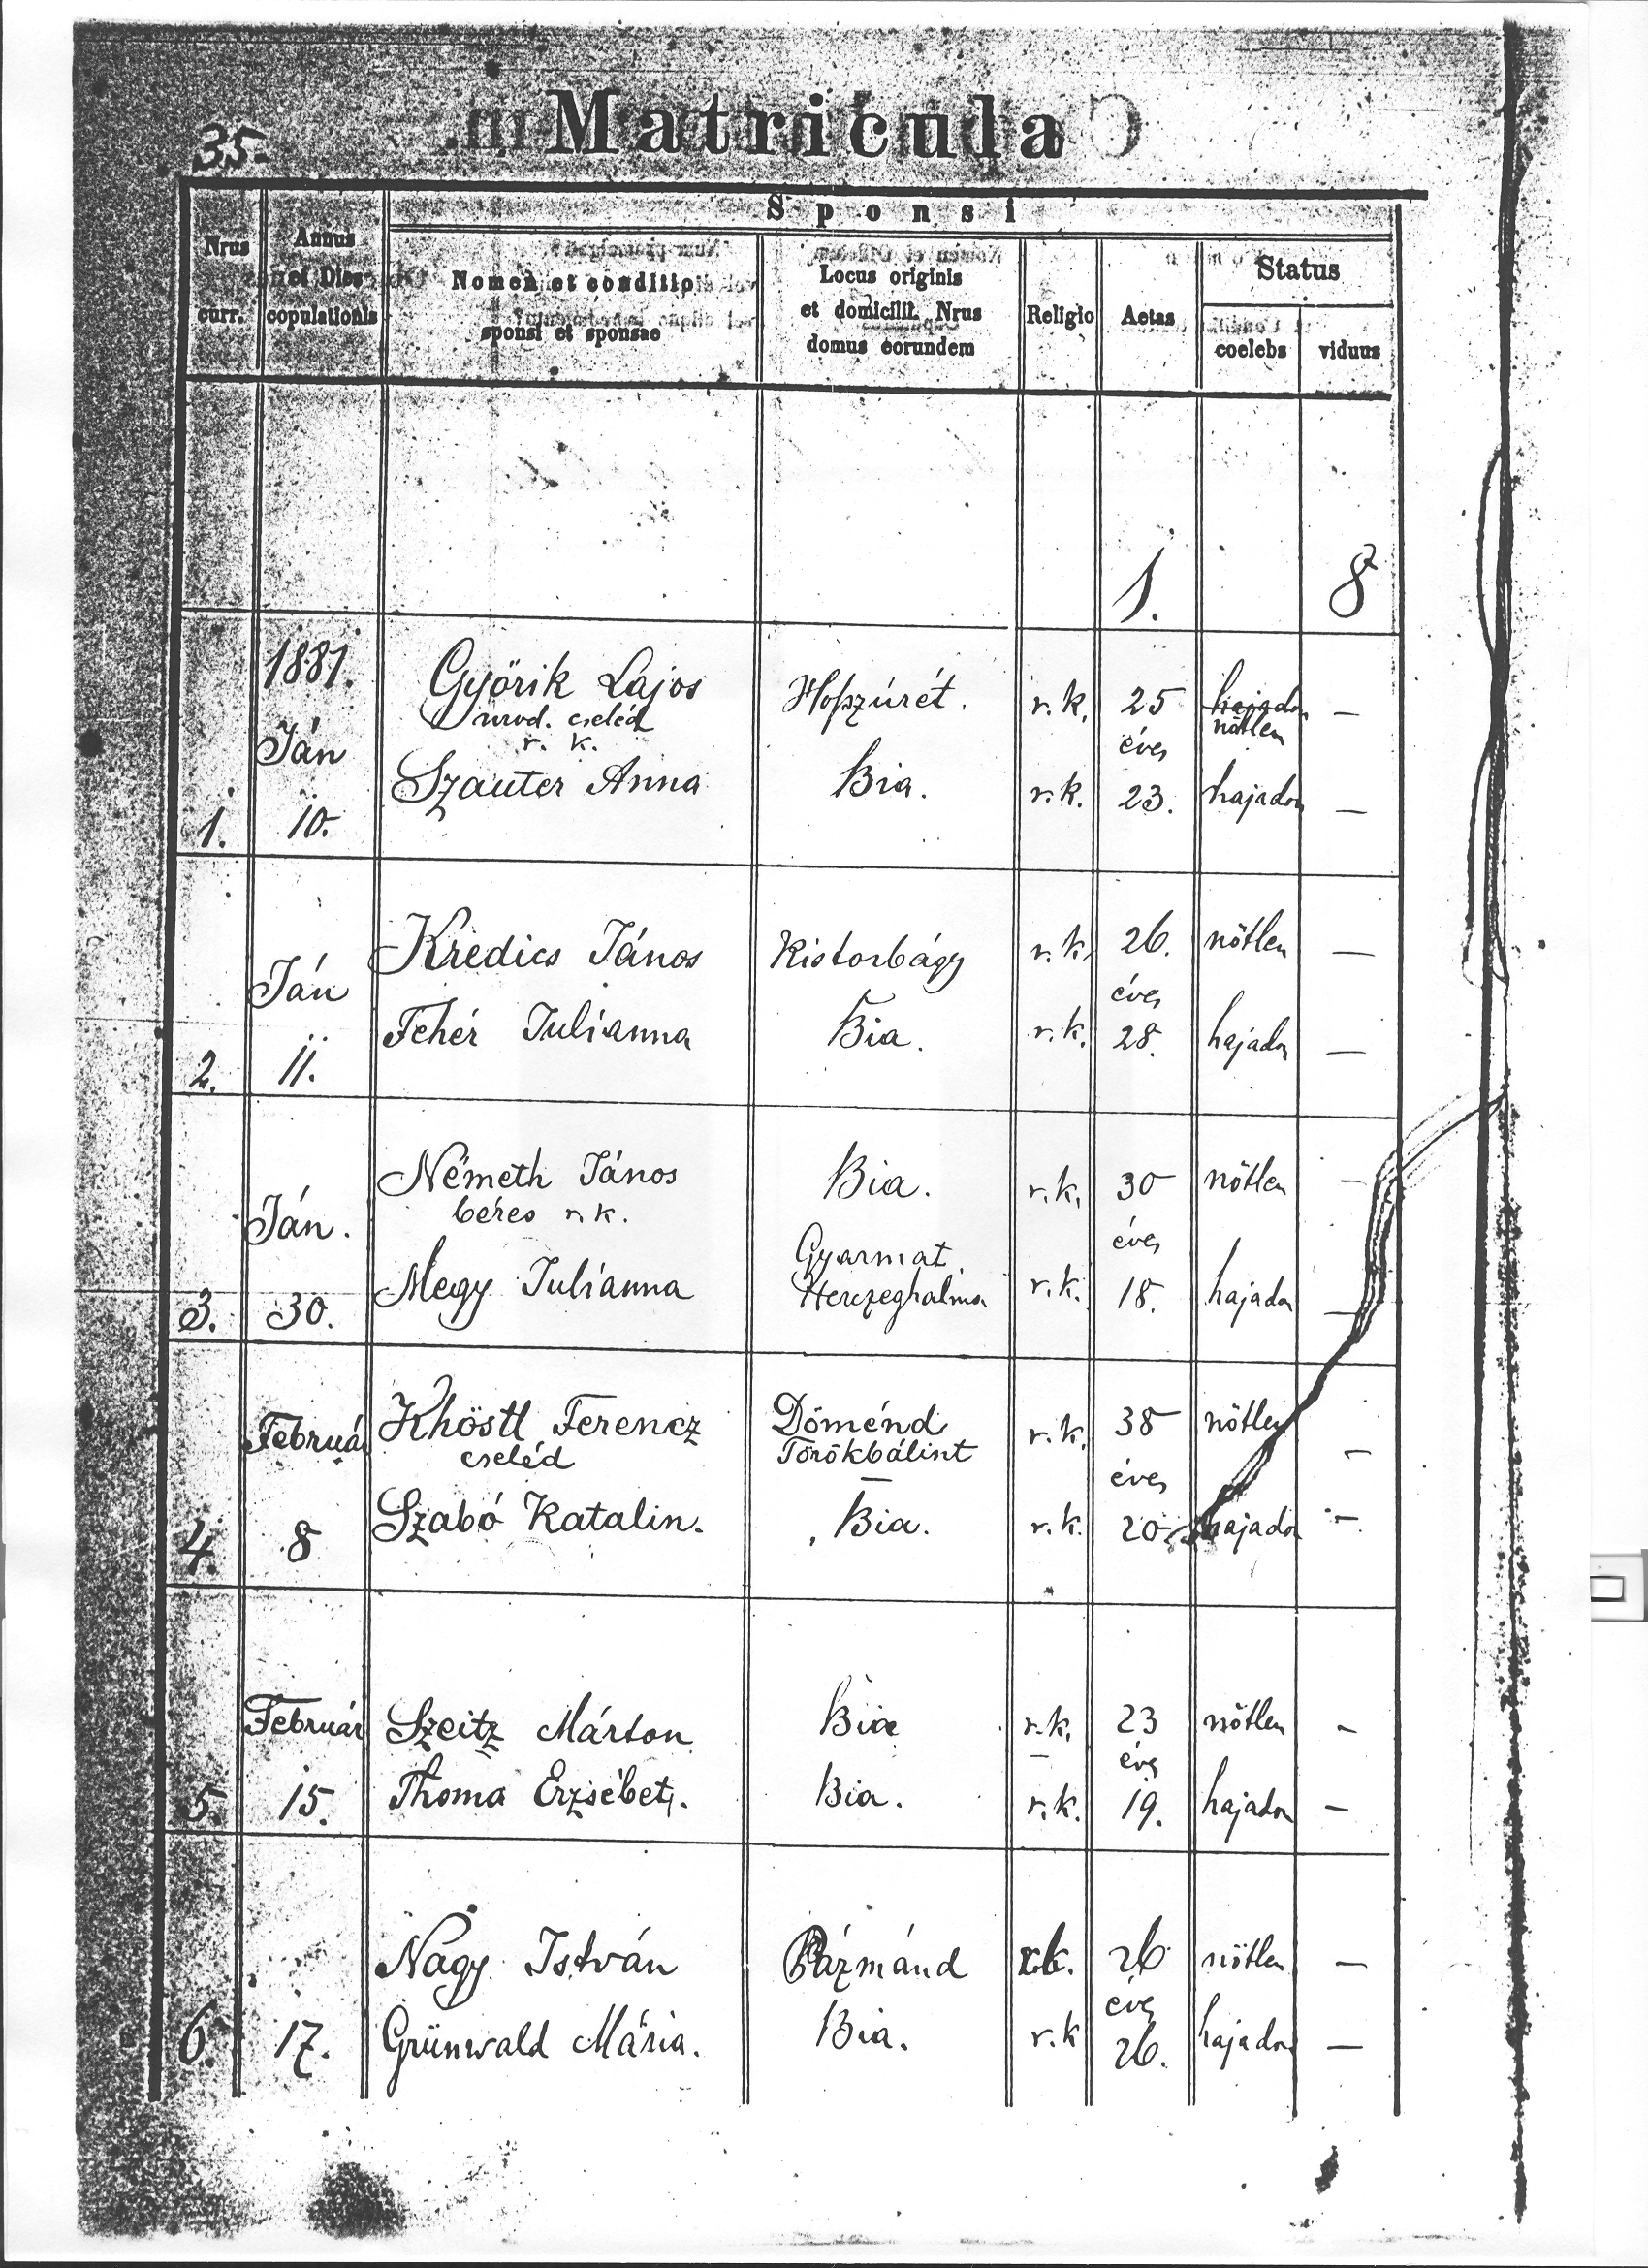 35.
Matricula
Sponsi
Nrus curr.
Annus et Dies copulationis
Nomen et conditio sponsi et sponsae
Locus originis et domicilii. Nrus domus eorundem
Religio
Aetas
Status
coelebs
viduus
1. 8
1881.
Győrik Lajos Hoſszúrét. r. k. 25 hajadon —
urod. cseléd nőtlen
r. k. éves
Ján
Szauter Anna Bia. r. k. 23. hajadon —
1. 10.
Kredics János Kistorbágy r. k. 26. nőtlen —
Ján éves
Fehér Julianna Bia. r. k. 28. hajadon —
2. 11.
Németh János Bia. r. k. 30 nőtlen —
béres r. k.
Ján. Gyarmat. éves
Megy Julianna Herczeghalma r. k. 18. hajadon —
3. 30.
Khöstl Ferencz Döménd r. k. 38 nőtlen —
Február cseléd Törökbálint éves
Szabó Katalin. Bia. r. k. 20. hajadon —
4. 8
Február Szeitz Márton Bia r. k. 23 nőtlen —
éves
5. 15. Thoma Erzsébet. Bia. r. k. 19. hajadon —
Nagy István Pázmánd r. k. 26 nőtlen —
éves
6. 17. Grünwald Mária. Bia. r. k 26. hajadon —